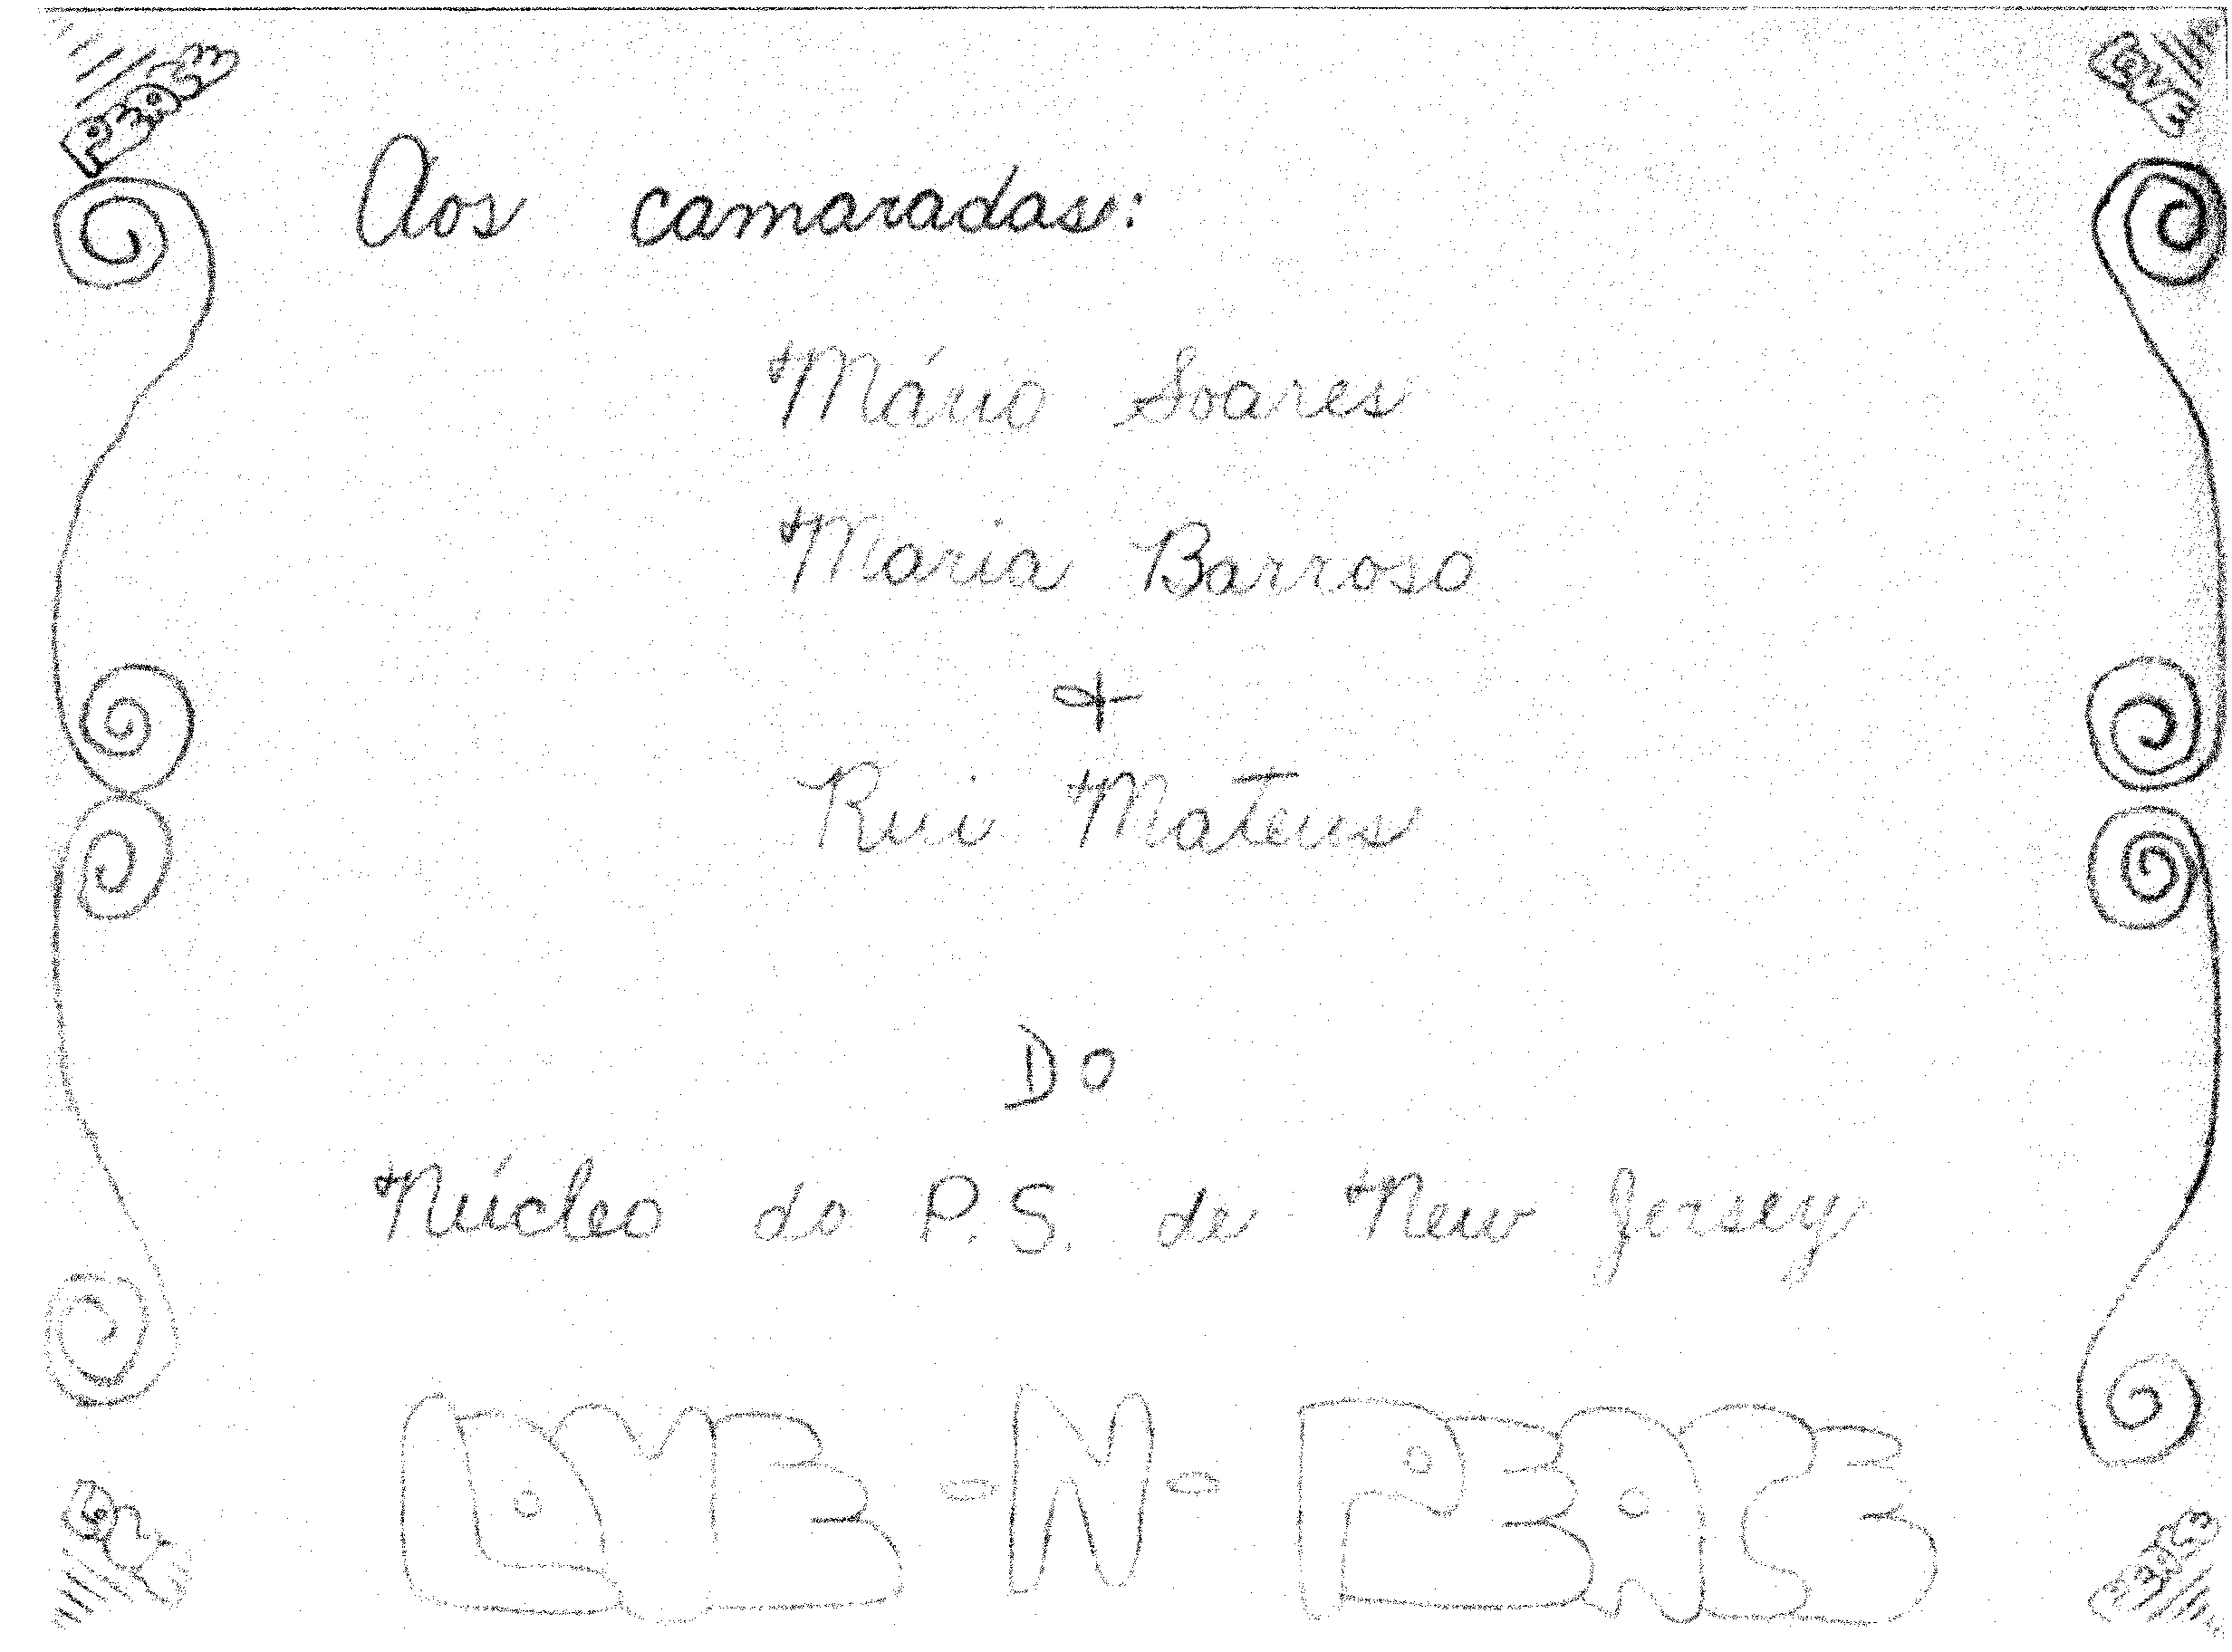 PEACE
LOVE
Aos camaradas:
Mário Soares
Maria Barroso
+
Rui Mateus
Do
Núcleo do P.S. de New Jersey
LOVE -N- PEACE
LOVE
PEACE